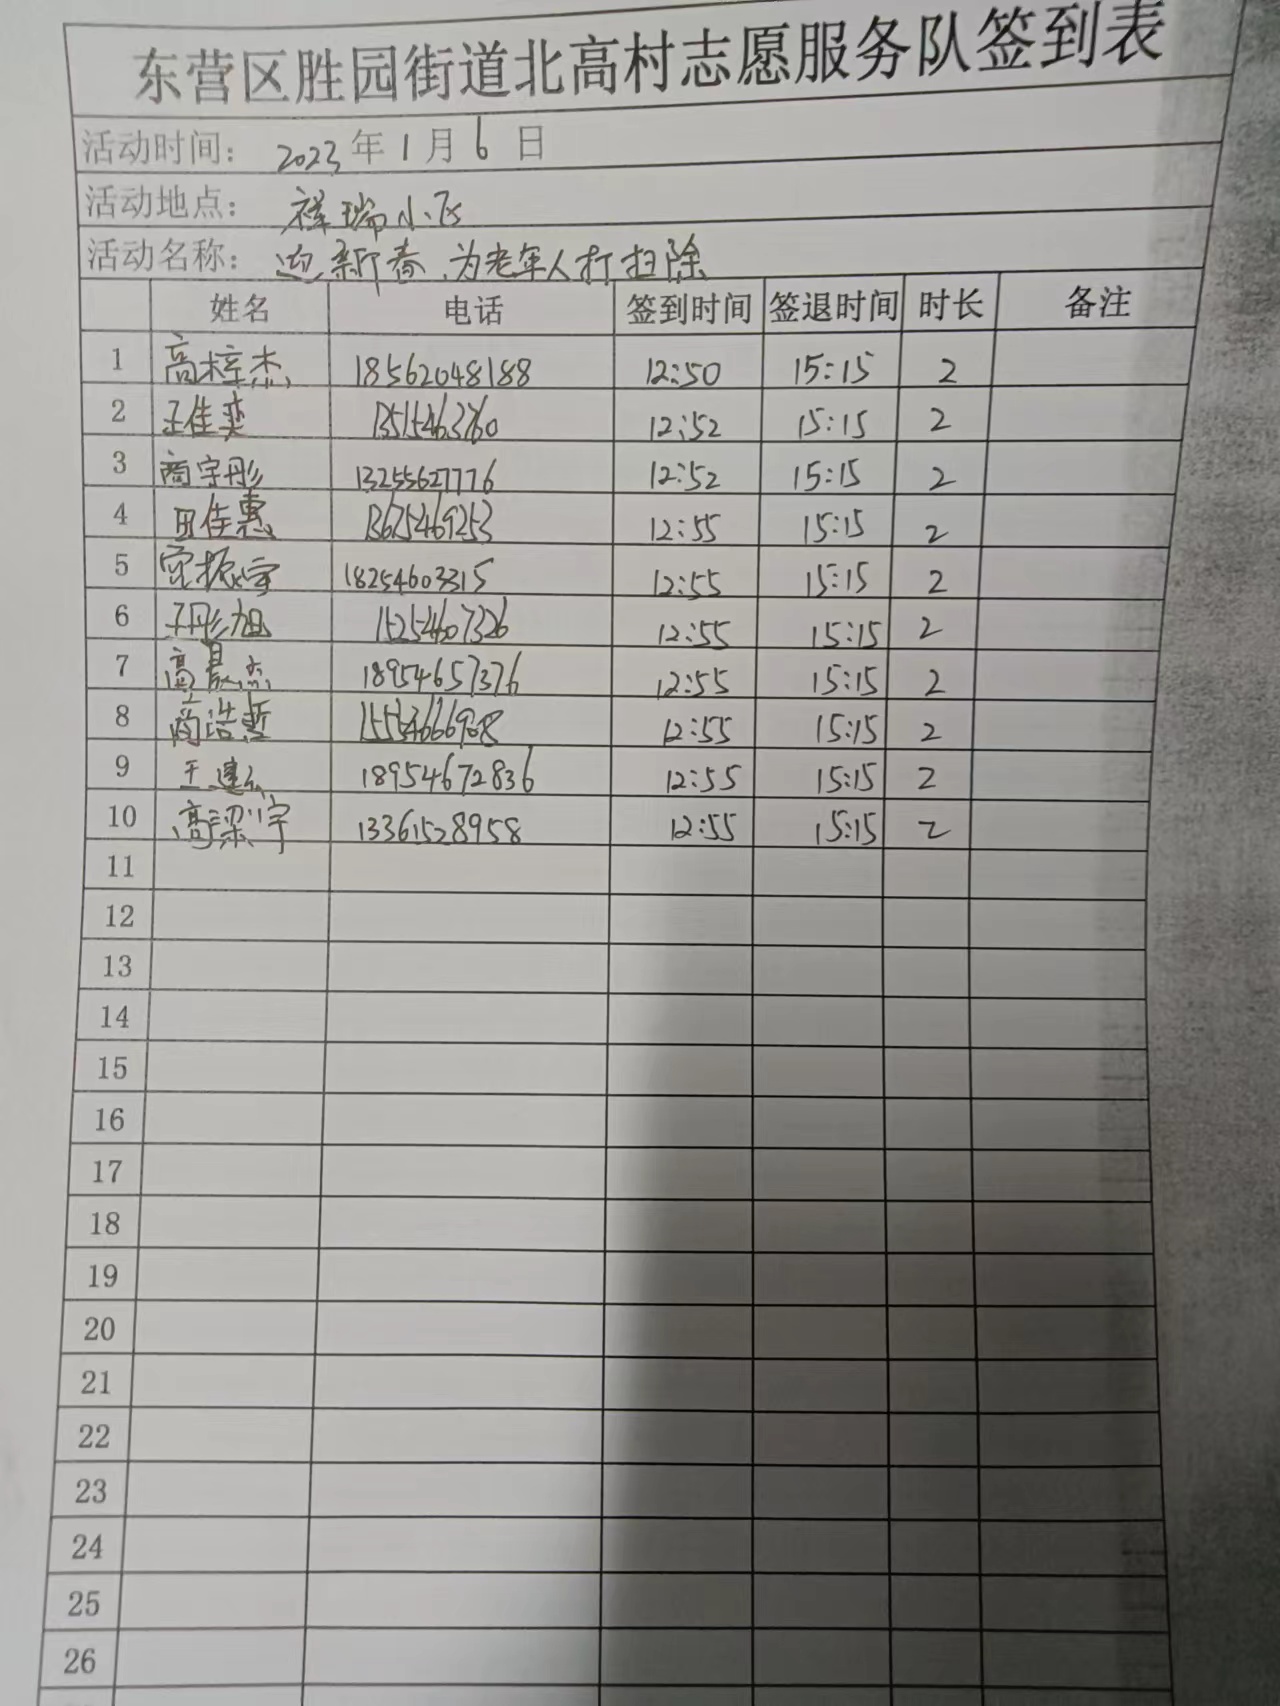 东营区胜园街道北高村志愿服务队签到表
活动时间： 2023年1月6日
活动地点： 祥瑞小区
活动名称： 迎新春、为老年人打扫除
姓名 电话 签到时间 签退时间 时长 备注
1 高梓杰 18562048188 12:50 15:15 2
2 王佳奕 13515463760 12:52 15:15 2
3 商宇彤 13255627776 12:52 15:15 2
4 田佳惠 13675469253 12:55 15:15 2
5 18254603315 12:55 15:15 2
6 15254607326 12:55 15:15 2
7 高晨杰 18954657376 12:55 15:15 2
8 商浩哲 12:55 15:15 2
9 王建 18954672836 12:55 15:15 2
10 高梁宇 13361528958 12:55 15:15 2
11
12
13
14
15
16
17
18
19
20
21
22
23
24
25
26